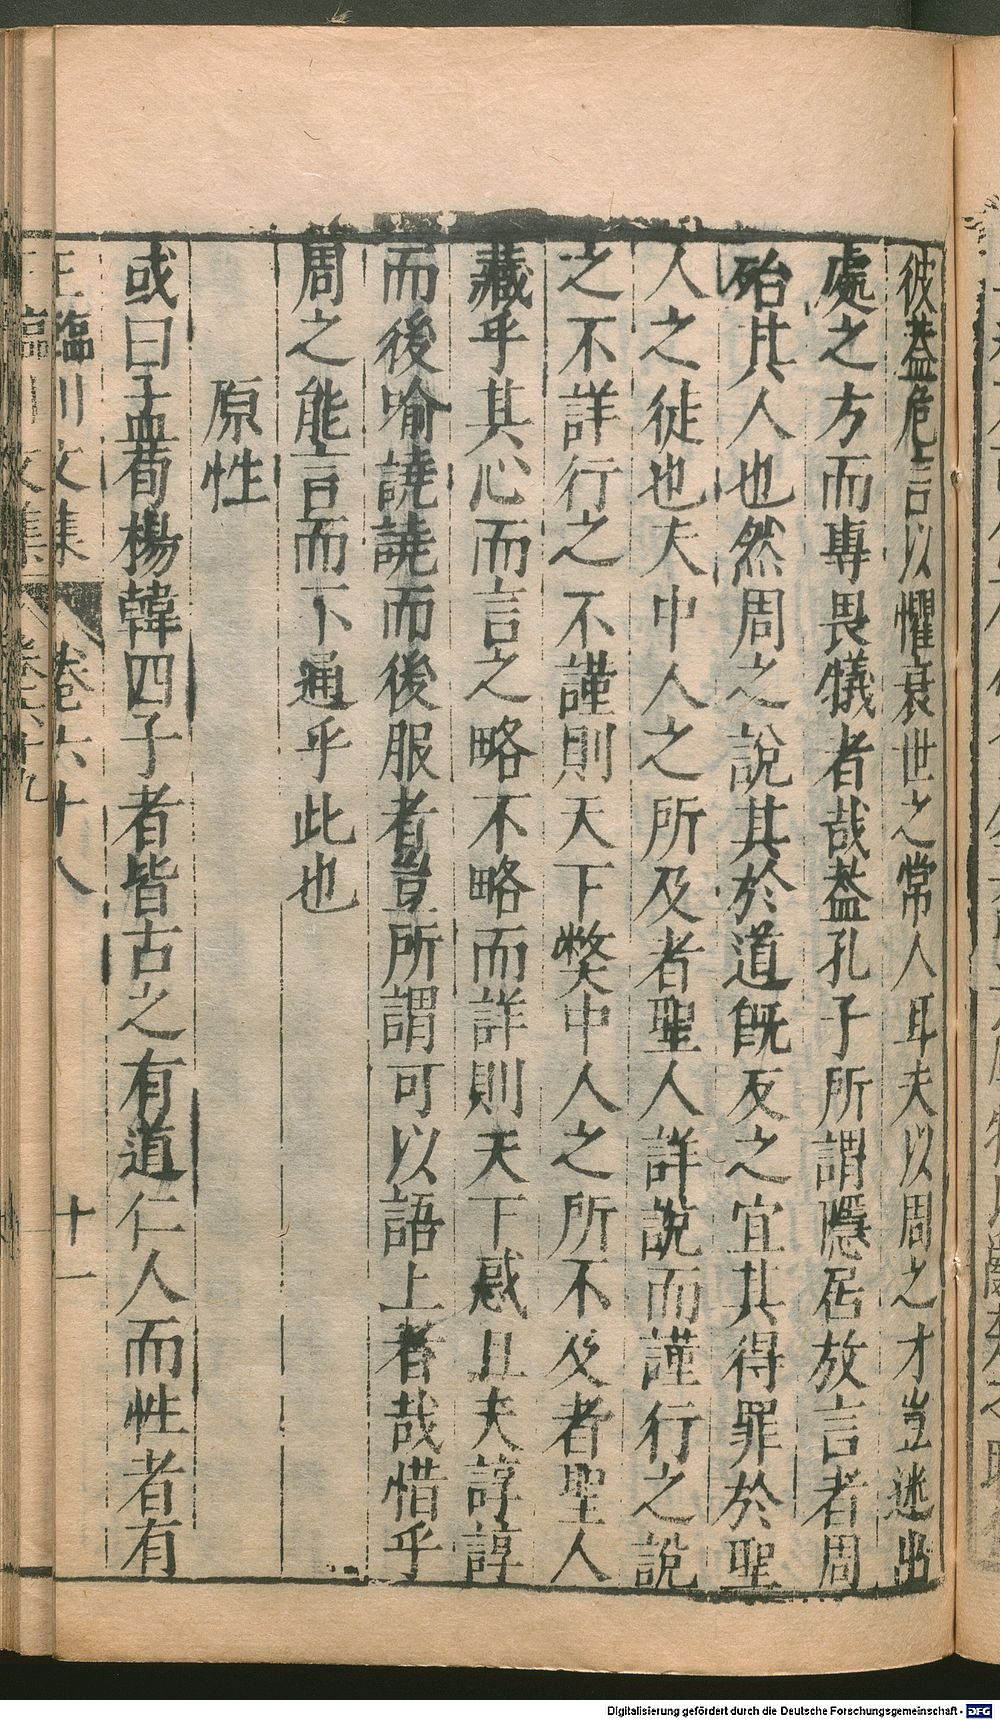 彼蓋危言以懼衰世之常人耳夫以周之才豈迷出
處之方而專畏犧者哉蓋孔子所謂隱居放言者周
殆其人也然周之說其於道既反之宜其得罪於聖
人之徒也夫中人之所及者聖人詳說而謹行之說
之不詳行之不謹則天下獘中人之所不及者聖人
藏乎其心而言之略不略而詳則天下惑且夫諄諄
而後喻譊譊而後服者豈所謂可以語上者哉惜乎
周之能言而不通乎此也
原性
或曰孟荀楊韓四子者皆古之有道仁人而性者有
王臨川文集 卷六十八 十一
王臨川文集
Digitalisierung gefördert durch die Deutsche Forschungsgemeinschaft - DFG